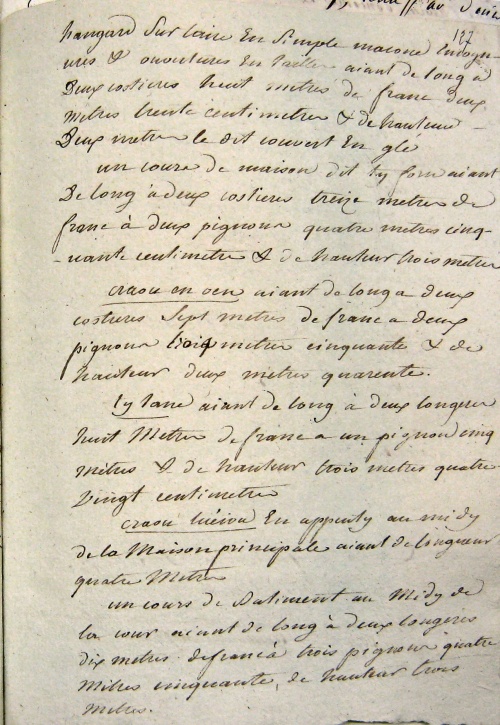 187
hangard sur laire En simple macone Encogn-
ures & ouvertures En taille aiant de long a
Deux costieres huit metres de franc deux
metres trente centimetres & de hauteur -
Deux metres le dit couvert En glé
un cours de maison dit ty forn aiant
De long à deux costieres treize metres de
franc à deux pignons quatre metres cinq-
-uante centimetres & de hauteur trois metres
craou en oen aiant de long a deux
costieres Sept metres de franc a deux
pignons trois metres cinquante & de
hauteur deux metres quarente.
ty lane aiant de long à deux longeres
huit Metres de franc a un pignon cinq
metres & de hauteur trois metres quatre
Vingt centimetres
craou En appenty au midy
de la Maison principale aiant de longueur
quatre Metres
un cours de Batiment au Midy de
la cour aiant de long à deux longeres
dix metres de franc à trois pignons quatre
Mètres cinquante, de hauteur trois
Metres.